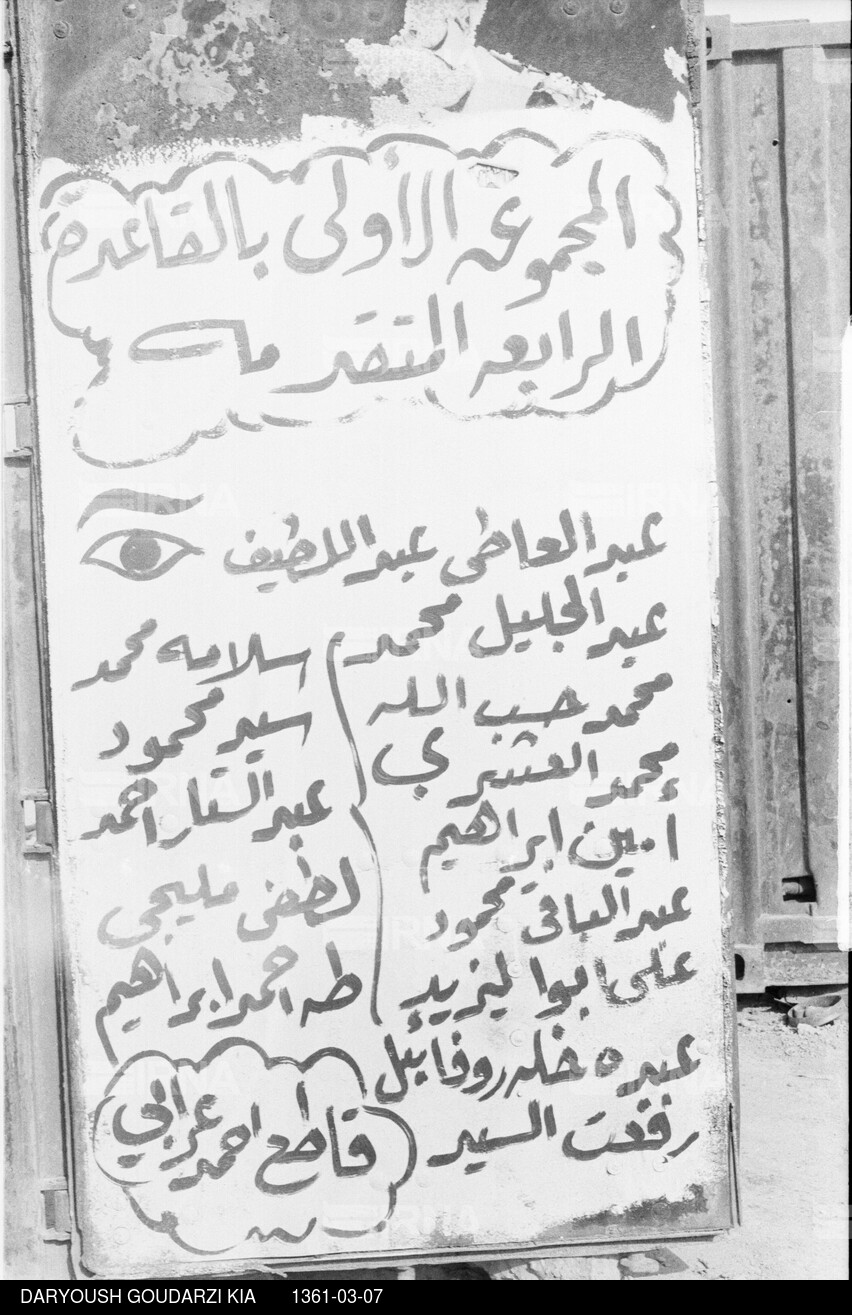 المجموعه الأولى بالقاعدة
الرابعه المتقدمه
عبد العاطى عبد اللطيف
عبد الجليل محمد
محمد حسب الله
محمد العشيري
امين ابراهيم
عبد الباقى محمود
على ابوا ليزيد
عبده خله روفائيل
رفعت السيد
سلامه محمد
سيد محمود
عبد الستار احمد
لطفى مليجى
طه احمد ابراهيم
قاطع احمد عرابي
IRNA
DARYOUSH GOUDARZI KIA 1361-03-07